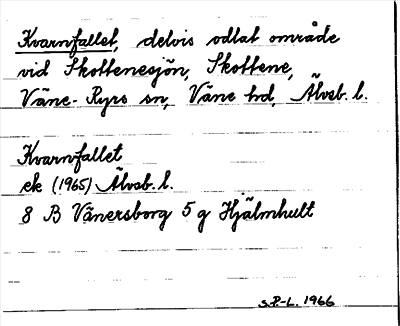 Kvarnfallet, delvis odlat område
vid Skottenesjön, Skottene,
Väne-Ryrs sn, Väne hd, Älvsb. l.
Kvarnfallet
ek (1965) Älvsb. l.
8 B Vänersborg 5 g Hjälmhult
S.P.-L. 1966